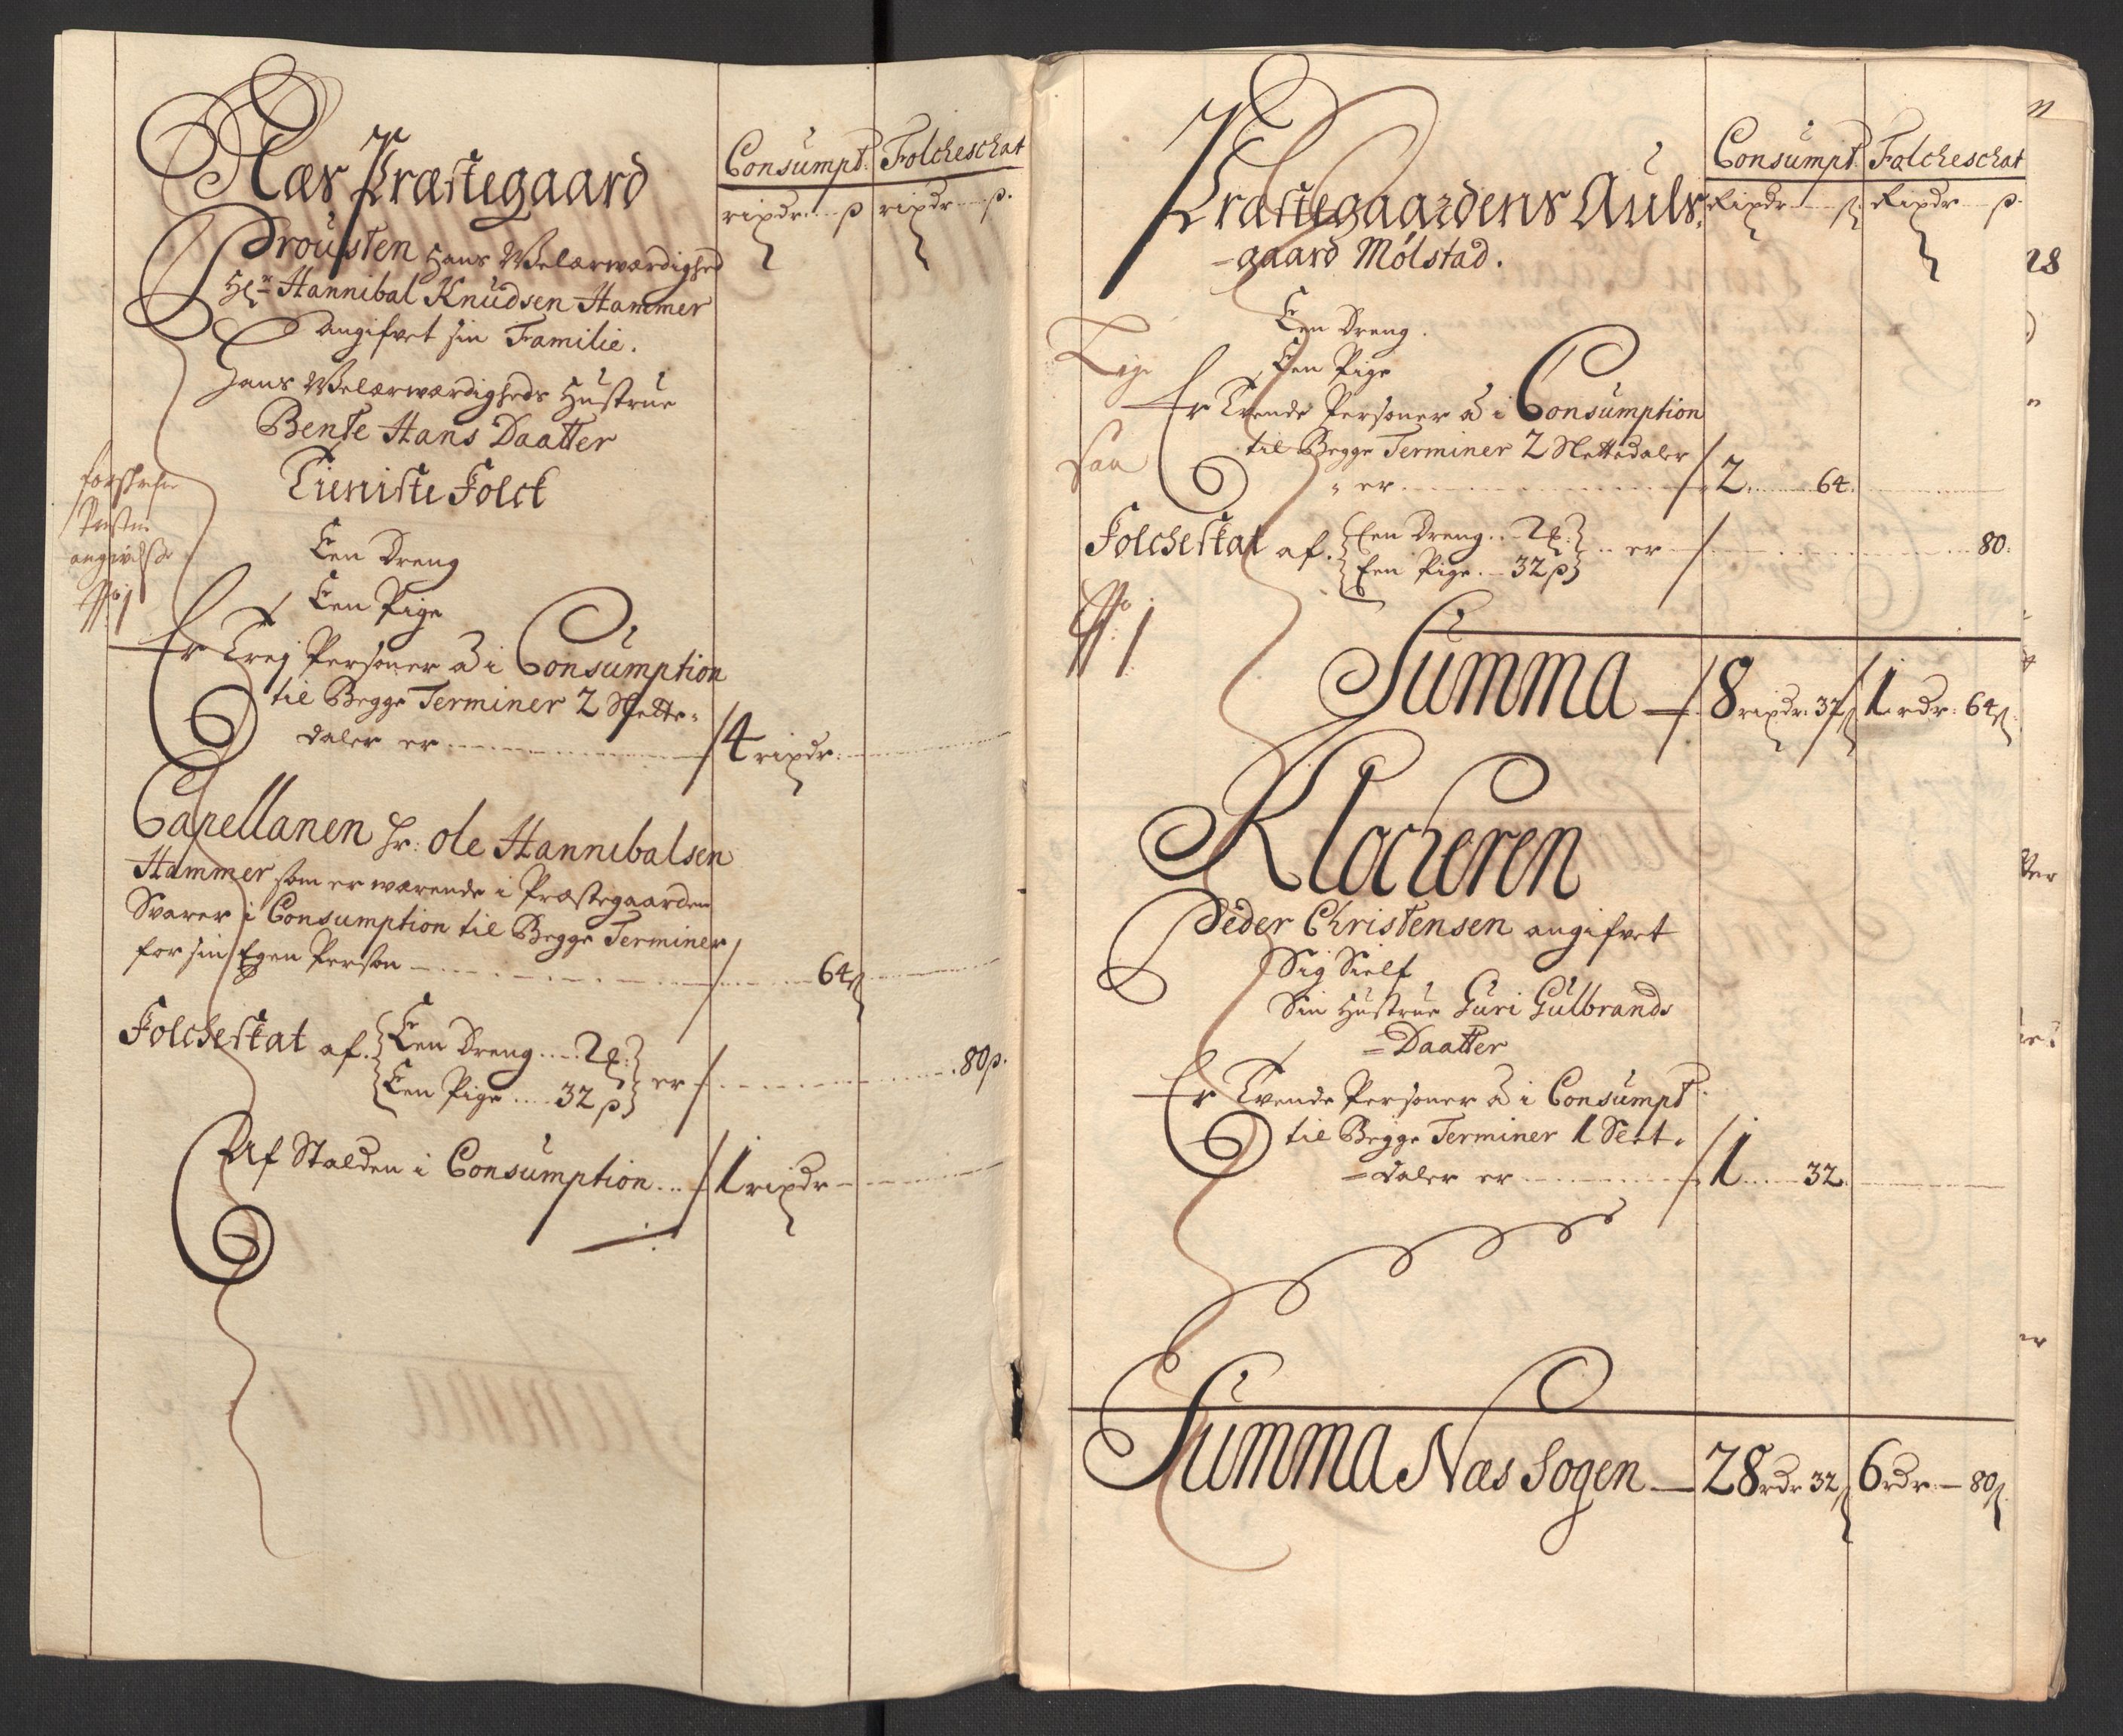 Næs Præstegaard
Consumpt. Folcheschat
rixdr. ... ß rixdr ... ß.
Prousten Hans Welærwærdighed
Hr. Hannibal Knudsen Hammer
angifvet sin Familie.
Hans Welærwærdigheds Hustrue
Bente Hans Daatter
Tieniste Folck
Een Dreng
Een Pige
Er Trej Personer à i Consumption
til Begge Terminer 2 Slette-
daler er 4 rixdr.
Capellanen Hr: Ole Hannibalsen
Hammer som er wærende i Præstegaarden
Svarer i Consumption til Begge Terminer
for sin Egen Person 64 ß
Folcheskat af. Een Dreng .... 2 ...
Een Pige .... 32 ß er 80 ß.
Af Stalden i Consumption ... 1 rixdr
angivelse
No 1
Præstegaardens Auls-
Consumpt. Folcheschat
Rixdr ß. Rixdr ß.
=gaard Mølstad.
Een Dreng.
Een Pige
Lige
Er Tvende Personer à i Consumption
til Begge Terminer 2 Slettedaler
Saa
er 2. 64.
Folcheskat af. Een Dreng .. 2 ...
Een Pige. 32 ß er 80.
No 1
Summa 8 rixdr. 32 ß 1 rdr: 64 ß
Klocheren
Peder Christensen angifvet
Sig Sielf
Sin Hustrue Guri Gulbrands
=Daatter
Er Tvende Personer à i Consumpt.
til Begge Terminer 1 Slet-
=daler er 1 32.
Summa Næs Sogen 28 rdr 32 ß 6 rdr. 80 ß
28